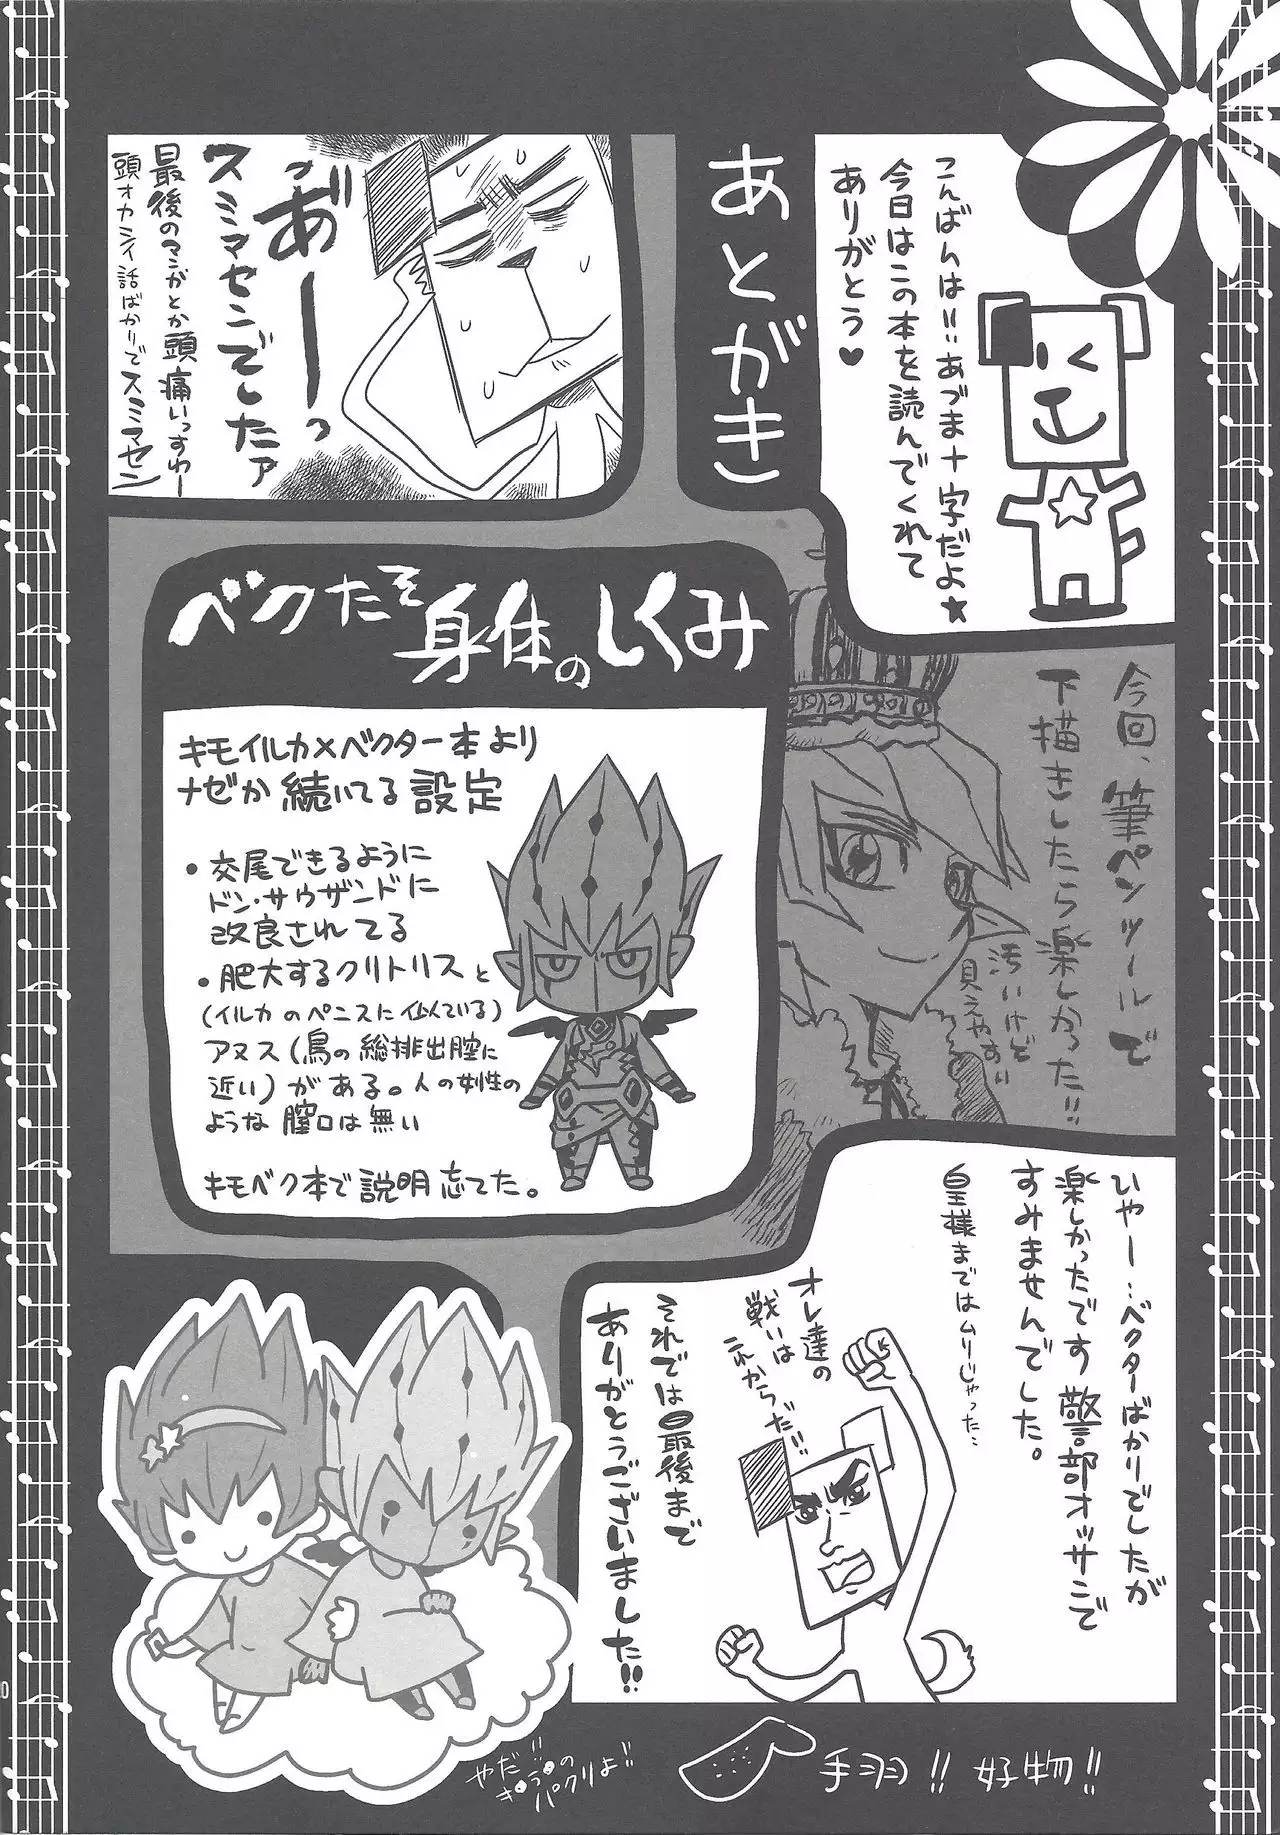 こんばんは!!あづま十字だよ★
今日はこの本を読んでくれて
ありがとう♥
あとがき
あ゛ーーっ
スミマセンでしたァ
最後のマンガとか頭痛いっすわー
頭オカシイ話ばかりでスミマセン
今回、筆ペンツールで
下描きしたら楽しかった!!
汚いけど
見えやすい
ベクたそ
身体のしくみ
キモイルカ×ベクター本より
ナゼか続いてる設定
・交尾できるように
ドン・サウザンドに
改良されてる
・肥大するクリトリスと
(イルカのペニスに似ている)
アヌス(鳥の総排出腔に
近い)がある。人の女性の
ような膣口は無い
キモベク本で説明忘てた。
ひやー…ベクターばかりでしたが
楽しかったです警部オッサンで
すみませんでした。
皇様まではムリじゃった…
オレ達の
戦いは
これからだ!!
それでは最後まで
ありがとうございました!!
やだ!!
パクリよ!!
手羽!! 好物!!